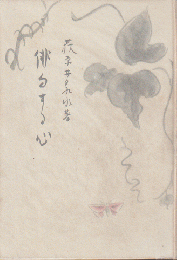 荻原井泉水著
俳句する心